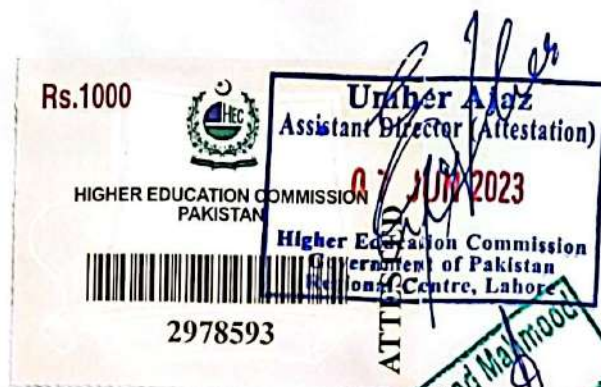 Rs.1000
HEC
HIGHER EDUCATION COMMISSION
PAKISTAN
2978593
ATTESTED
Umher Ajaz
Assistant Director (Attestation)
JUN 2023
Higher Education Commission
Government of Pakistan
Regional Centre, Lahore
Mahmood